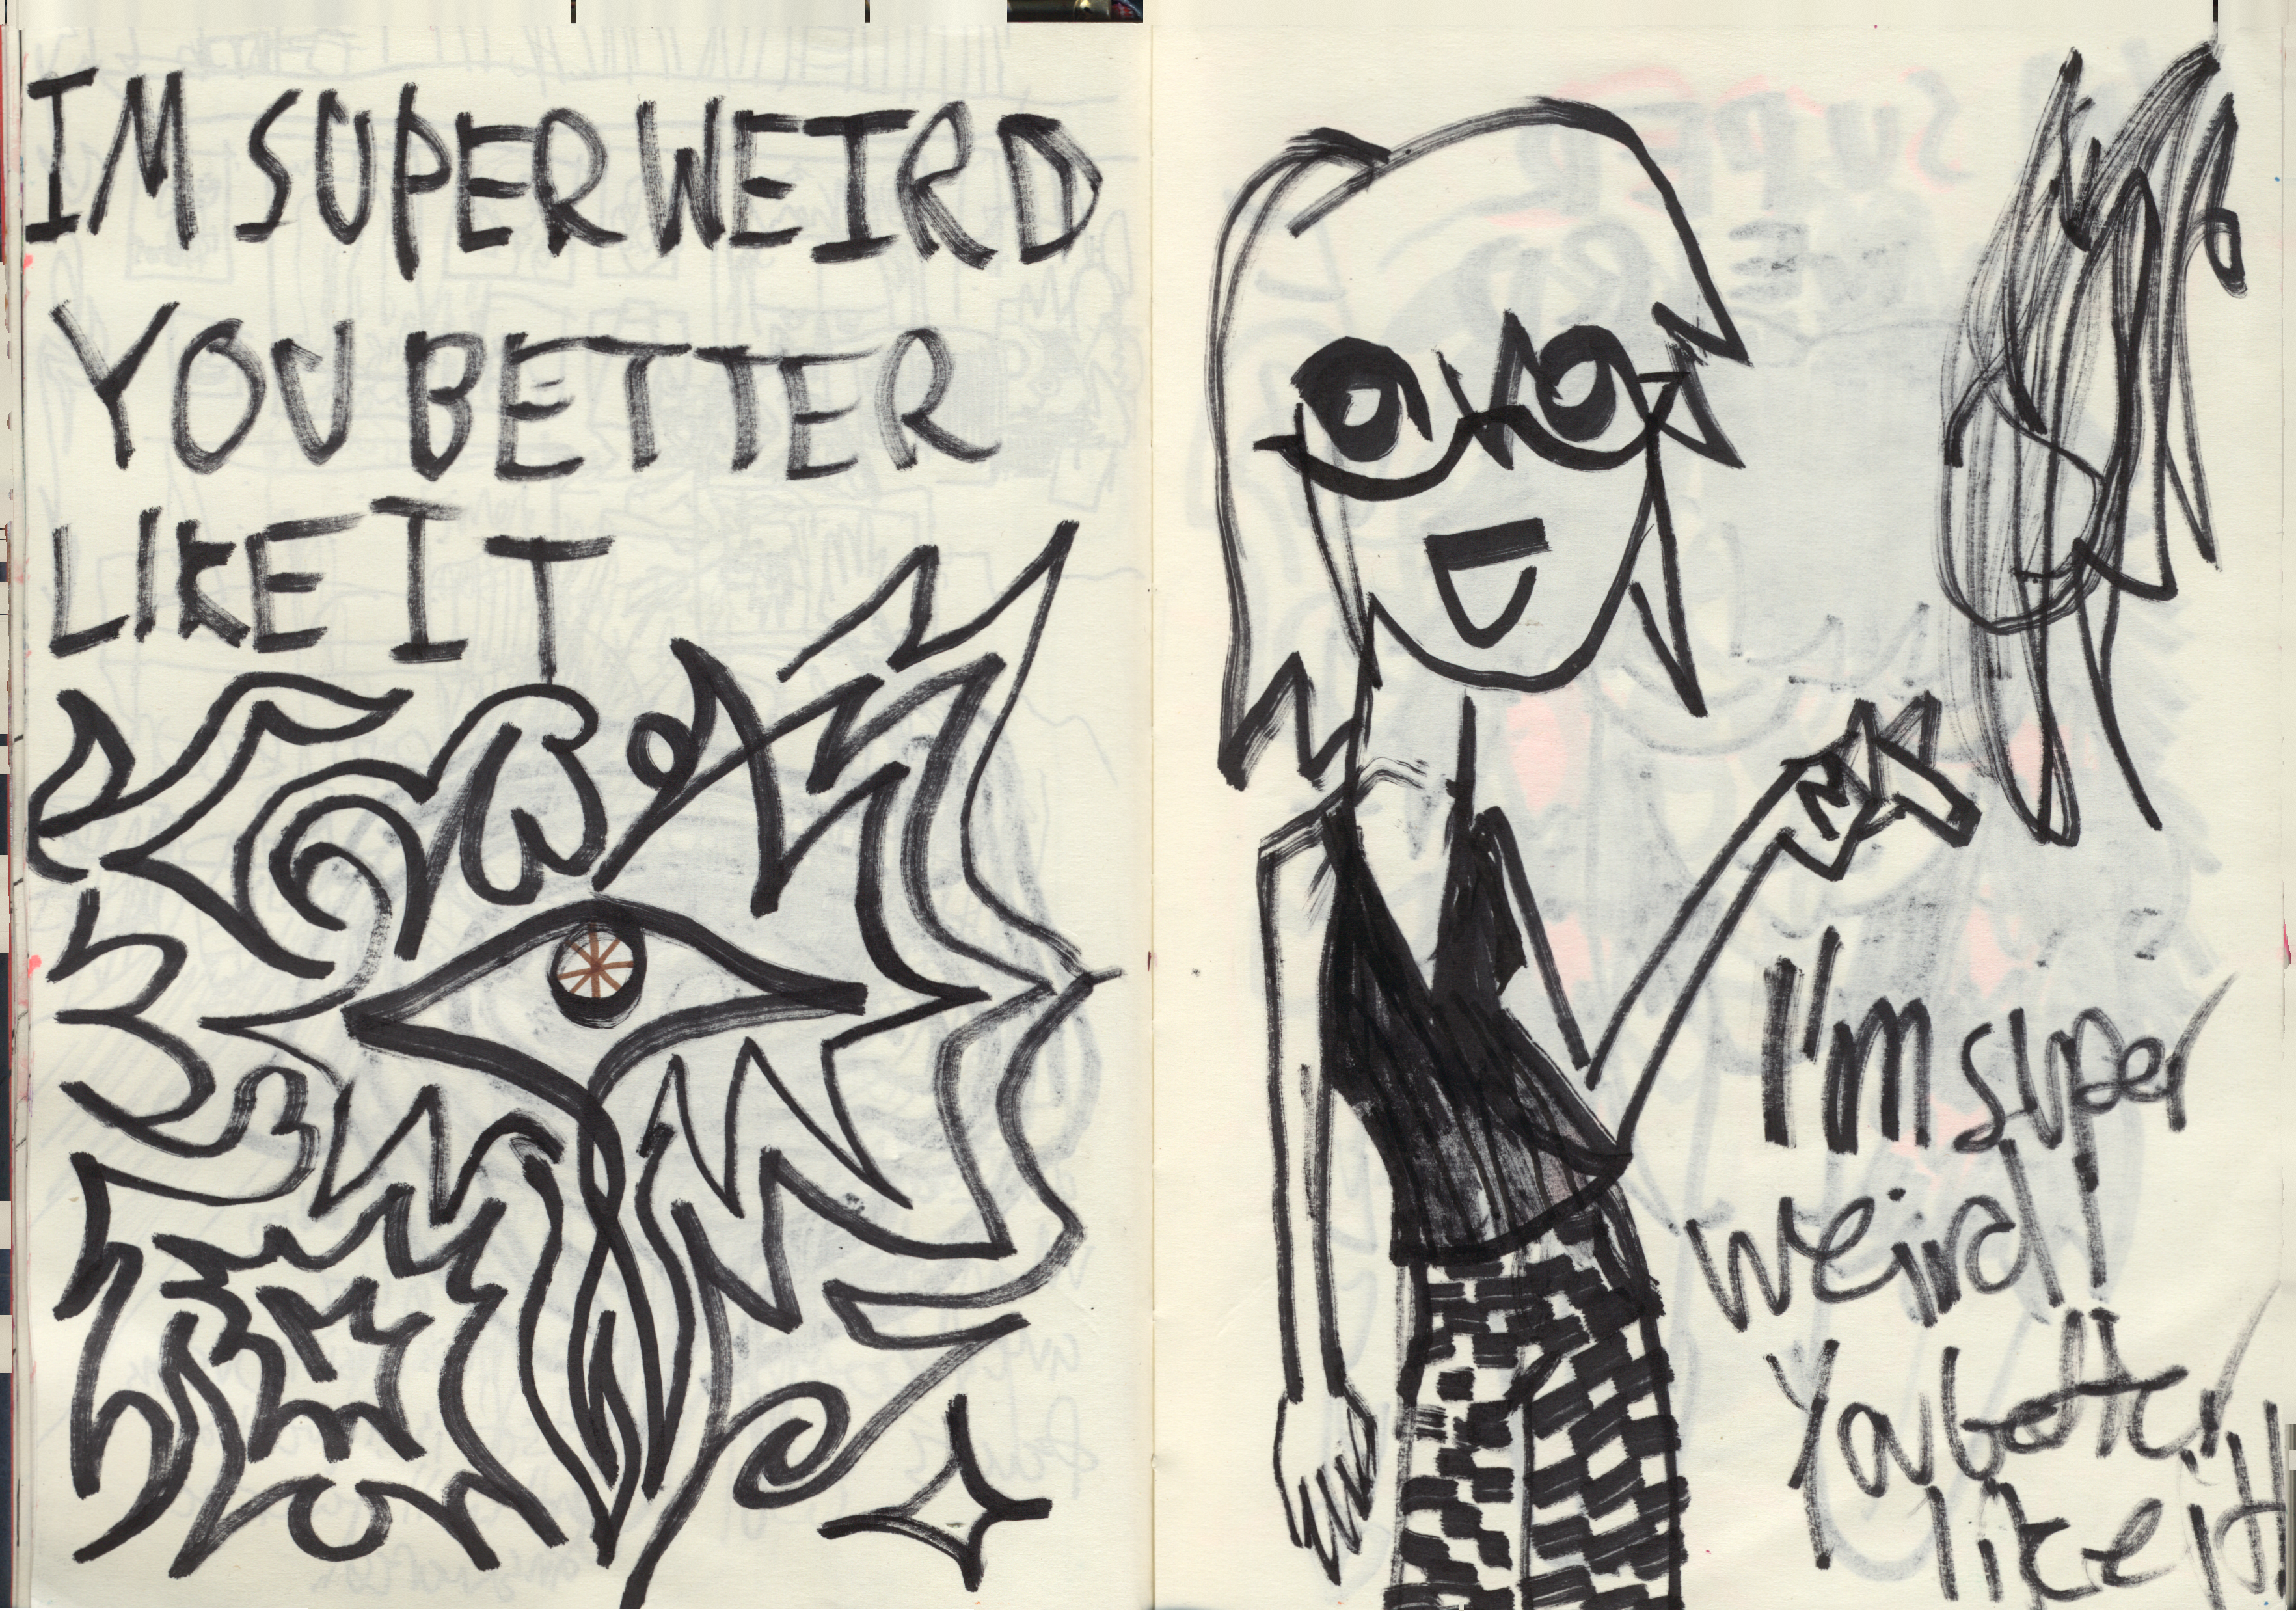 IM SUPER WEIRD
YOU BETTER
LIKE IT
I'm super
weird!
You better
like it!